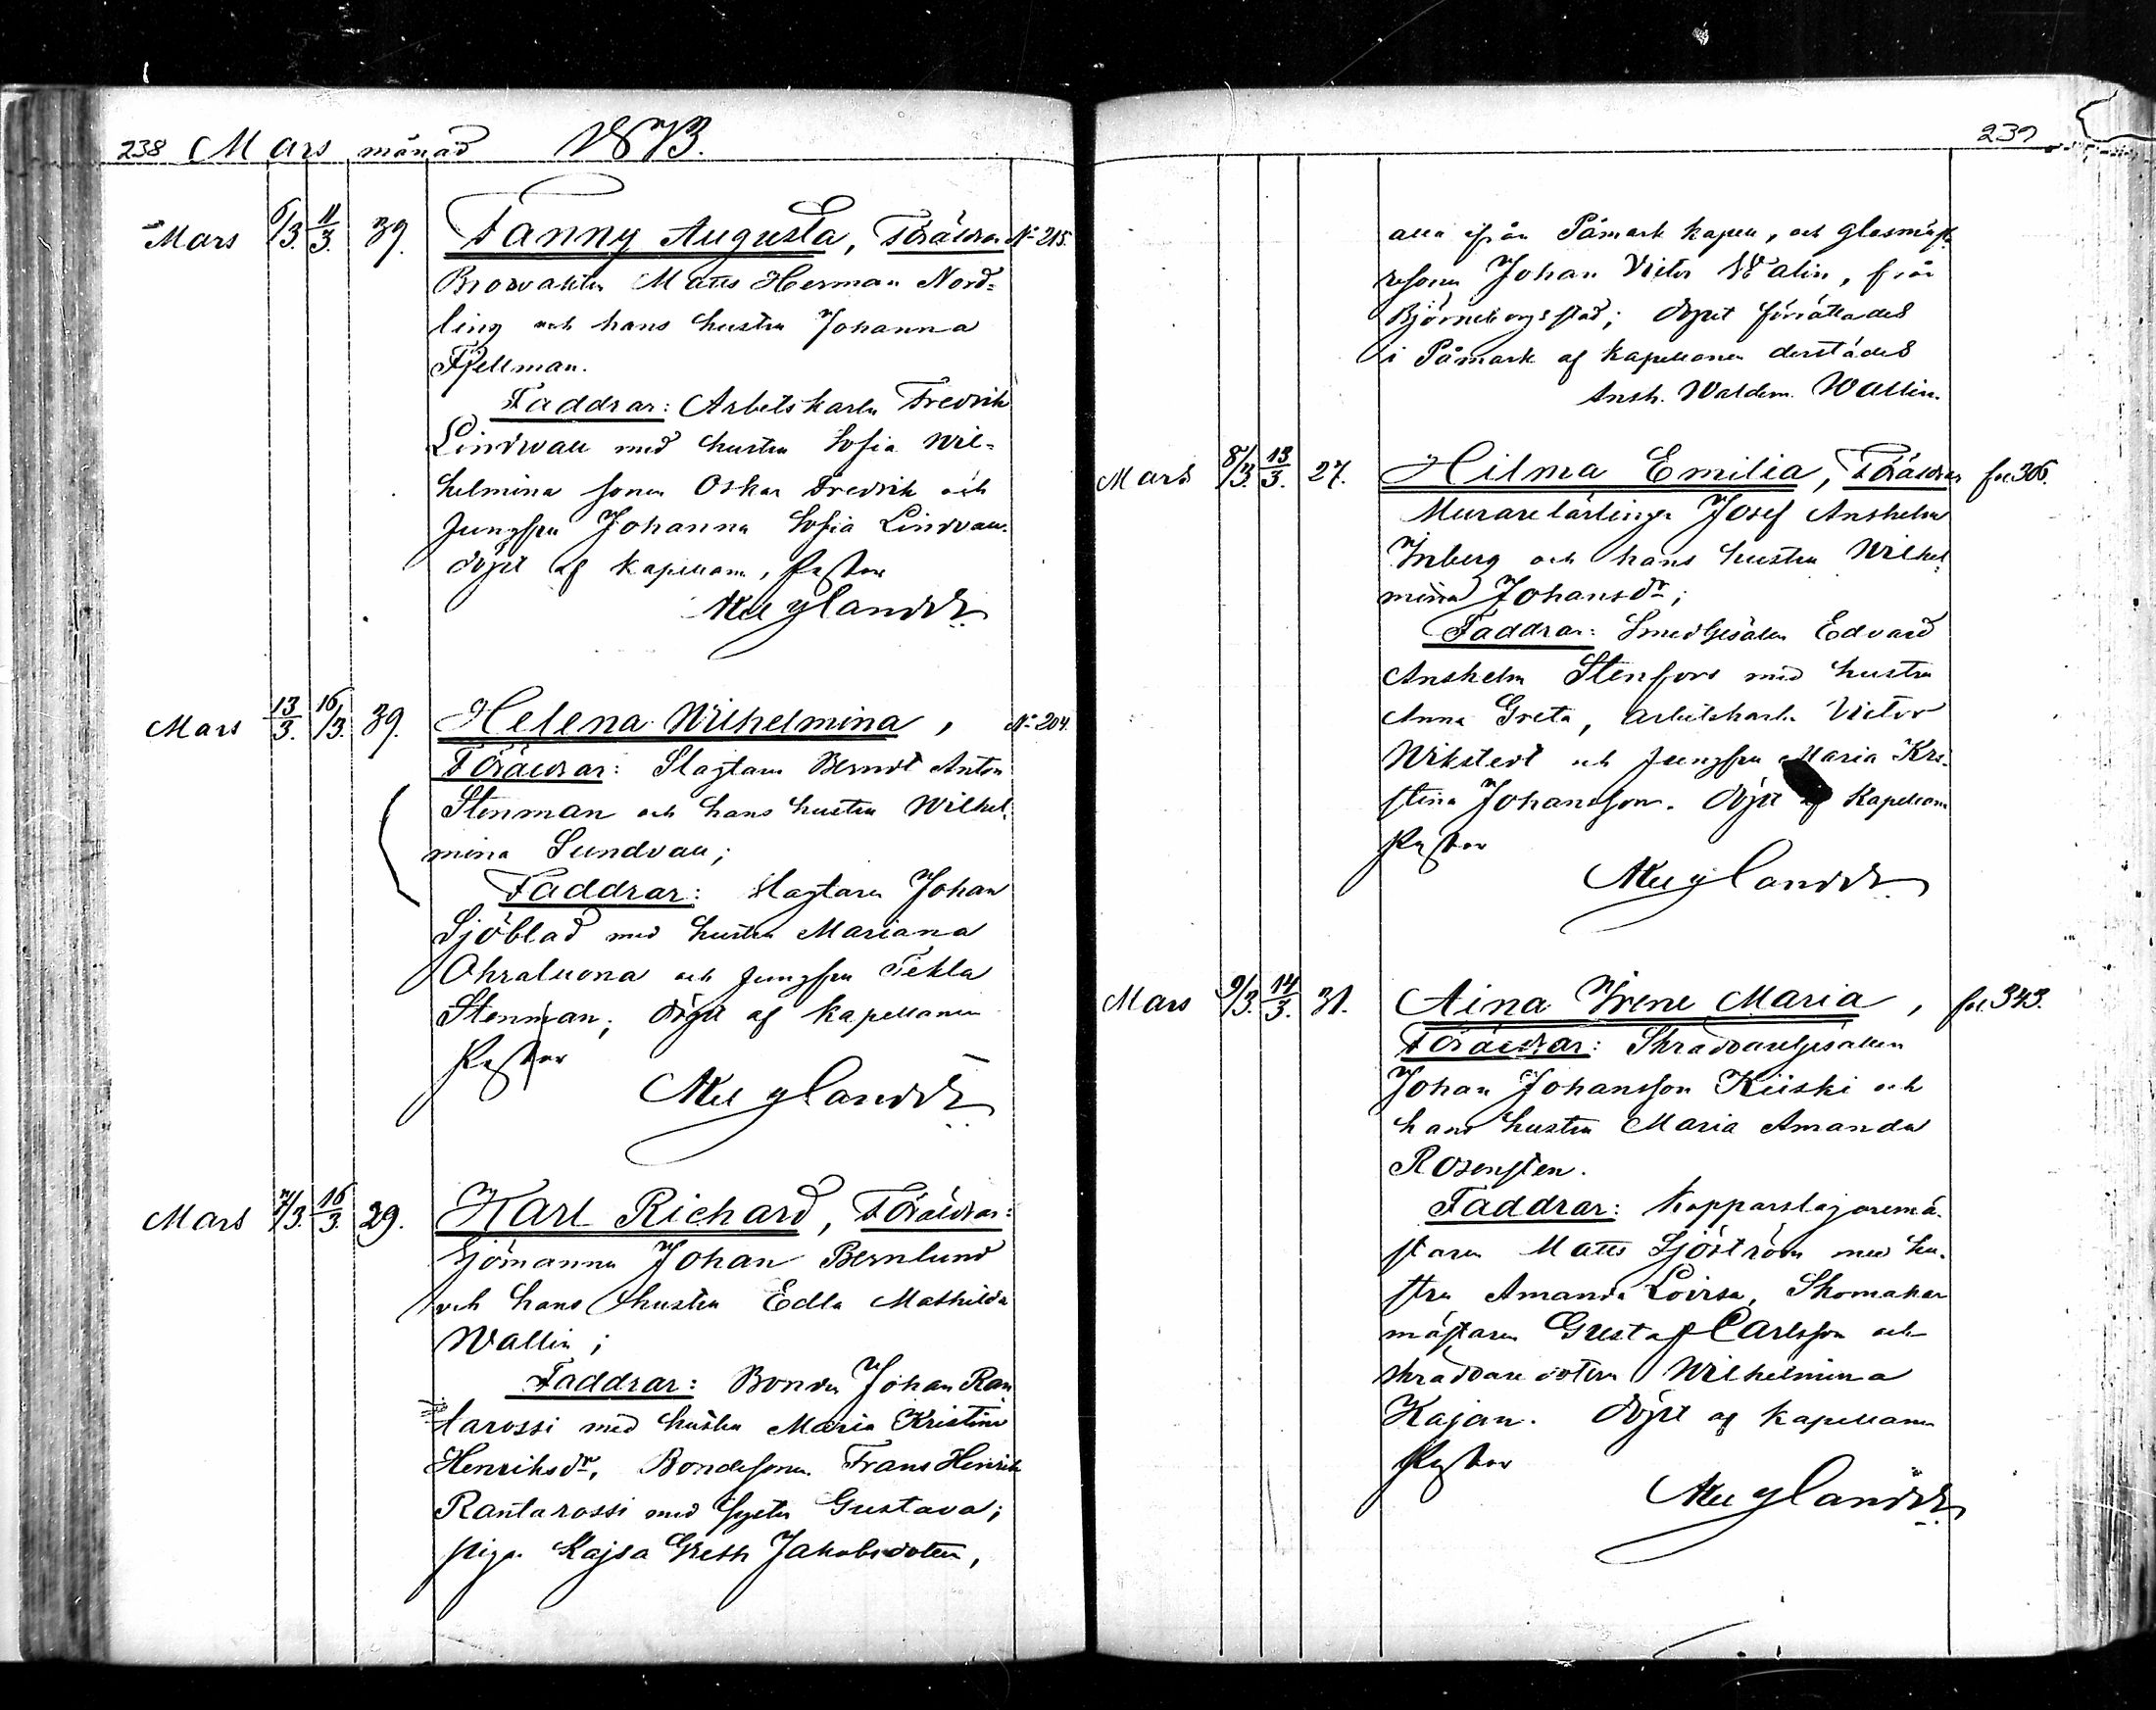 238 Mars månad 1873.
Mars 6/3. 11/3. 39. Fanny Augusta, Föräldrar N:o 215.
Brovakten Matts Herman Nord=
ling och hans hustru Johanna
Fjellman.
Faddrar: Arbetskarln Fredrik
Lindvall med hustru Sofia Wil=
helmina sonen Oskar Fredrik och
Jungfru Johanna Sofia Lindvall.
döpt af Kapellanen, Pastor
Mars 13/3. 16/3. 39. Helena Wilhelmina, N:o 204.
Föräldrar: Slagtaren Berndt Anton
Stenman och hans hustru Wilhel=
mina Sundvall;
Faddrar: Slagtaren Johan
Sjöblad med hustru Mariana
Ohraluoma och Jungfru Tekla
Stenman; döpt af Kapellanen
Pastor
Mars 7/3. 16/3. 29. Karl Richard, Föräldrar:
Sjömannen Johan Bernlund
och hans hustru Edla Mathilda
Wallin;
Faddrar: Bonden Johan Ran
tarossi med hustru Maria Kristina
Henriksdr, Bondesonen Frans Henrik
Rantarossi med syster Gustava;
pigan Kajsa Greta Jakobsdotter,
239
alla ifrån Påmark kapell, och glasmäst
resonen Johan Victor Walin, från
Björneborgs stad; döpet förrättades
i Påmark af Kapellanen derstädes
Ansh. Waldem. Wallin.
Mars 8/3. 13/3. 27. Hilma Emilia, Föräldrar fol. 306.
Murarelärlingen Josef Anshelm
Inberg och hans hustru Wilhel
mina Johansdr;
Faddrar: Smedgesälen Edvard
Anshelm Stenfors med hustru
Anna Greta, arbetskarln Victor
Wikstedt och Jungfru Maria Kri-
stina Johansson. döpt af Kapellanen
Pastor
Mars 9/3. 14/3. 31. Aina Irene Maria, fol. 343.
Föräldrar: Skraddaregesällen
Johan Johansson Kiiski och
hans hustru Maria Amanda
Rosensten.
Faddrar: Kopparslagaremä-
staren Matts Sjöström med hu-
stru Amanda Lovisa, Skomakar
mästaren Gustaf Carlsson och
skraddare dottern Wilhelmina
Kajan. döpt af Kapellanen
Pastor